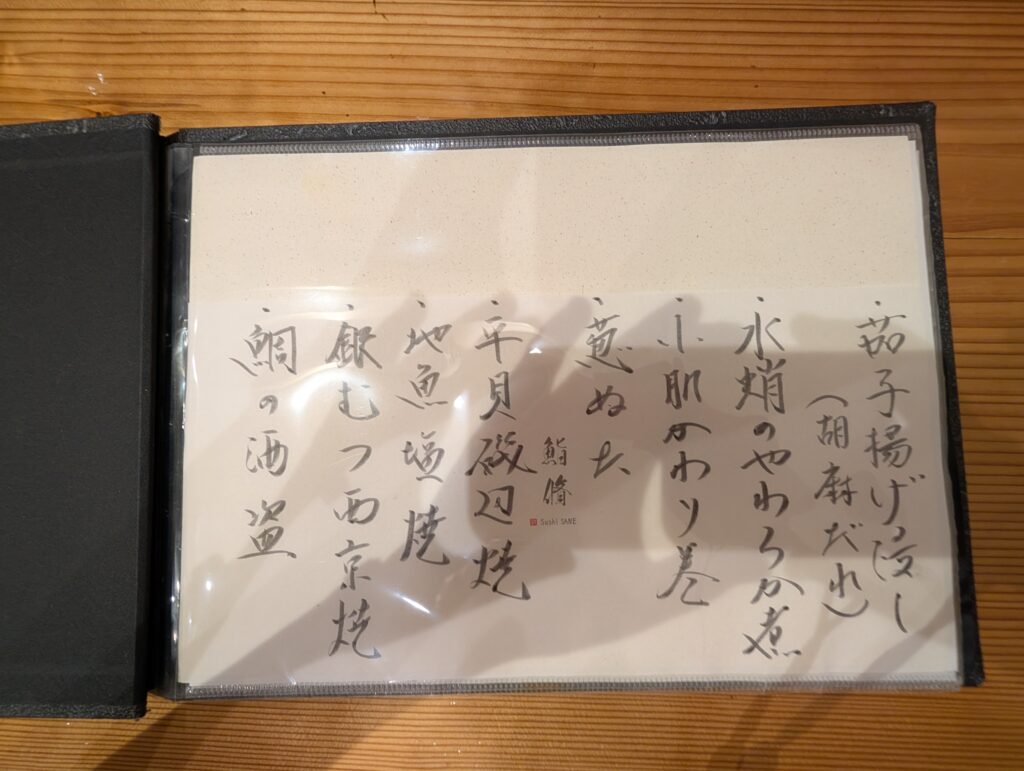 ・茄子揚げ浸し
(胡麻だれ)
・水蛸のやわらか煮
・小肌かわり巻
・葱ぬた
・平貝磯辺焼
・地魚塩焼
・銀むつ西京焼
・鯛の酒盗
鮨脩
Sushi SANE